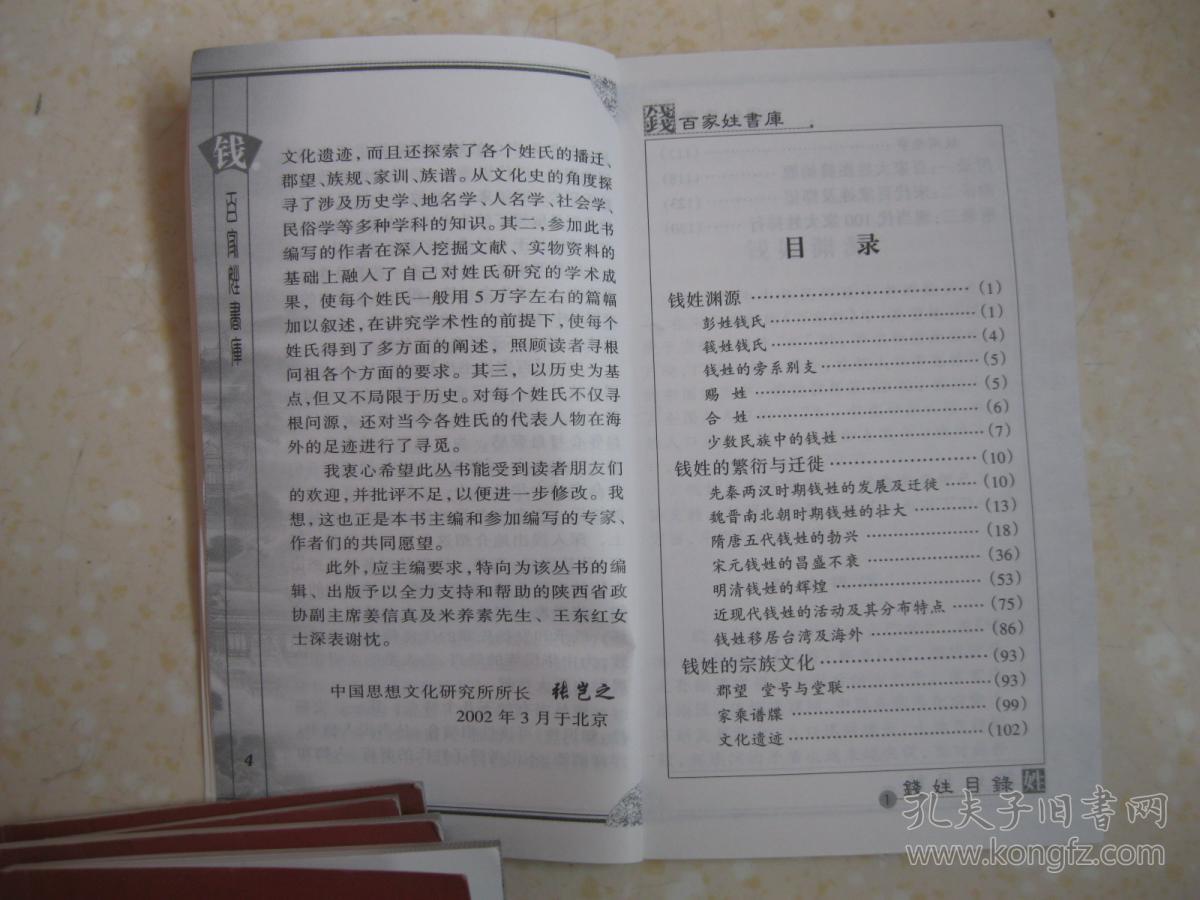 钱
百家姓書庫
文化遗迹，而且还探索了各个姓氏的播迁、
郡望、族规、家训、族谱。从文化史的角度探
寻了涉及历史学、地名学、人名学、社会学、
民俗学等多种学科的知识。其二，参加此书
编写的作者在深入挖掘文献、实物资料的
基础上融入了自己对姓氏研究的学术成
果，使每个姓氏一般用5万字左右的篇幅
加以叙述，在讲究学术性的前提下，使每个
姓氏得到了多方面的阐述，照顾读者寻根
问祖各个方面的要求。其三，以历史为基
点，但又不局限于历史。对每个姓氏不仅寻
根问源，还对当今各姓氏的代表人物在海
外的足迹进行了寻觅。
我衷心希望此丛书能受到读者朋友们
的欢迎，并批评不足，以便进一步修改。我
想，这也正是本书主编和参加编写的专家、
作者们的共同愿望。
此外，应主编要求，特向为该丛书的编
辑、出版予以全力支持和帮助的陕西省政
协副主席姜信真及米养素先生、王东红女
士深表谢忱。
中国思想文化研究所所长 张岂之
2002年3月于北京
4
錢百家姓書庫
目 录
钱姓渊源 ……………………（1）
彭姓钱氏 ……………………（1）
篯姓钱氏 ……………………（4）
钱姓的旁系别支 ……………………（5）
赐 姓 ……………………（5）
合 姓 ……………………（6）
少数民族中的钱姓 ……………………（7）
钱姓的繁衍与迁徙 ……………………（10）
先秦两汉时期钱姓的发展及迁徙 ……（10）
魏晋南北朝时期钱姓的壮大 …………（13）
隋唐五代钱姓的勃兴 ……………………（18）
宋元钱姓的昌盛不衰 ……………………（36）
明清钱姓的辉煌 ……………………（53）
近现代钱姓的活动及其分布特点 ……（75）
钱姓移居台湾及海外 ……………………（86）
钱姓的宗族文化 ……………………（93）
郡望 堂号与堂联 ……………………（93）
家乘谱牒 ……………………（99）
文化遗迹 ……………………（102）
1 錢姓目錄 姓
孔夫子旧书网
www.kongfz.com